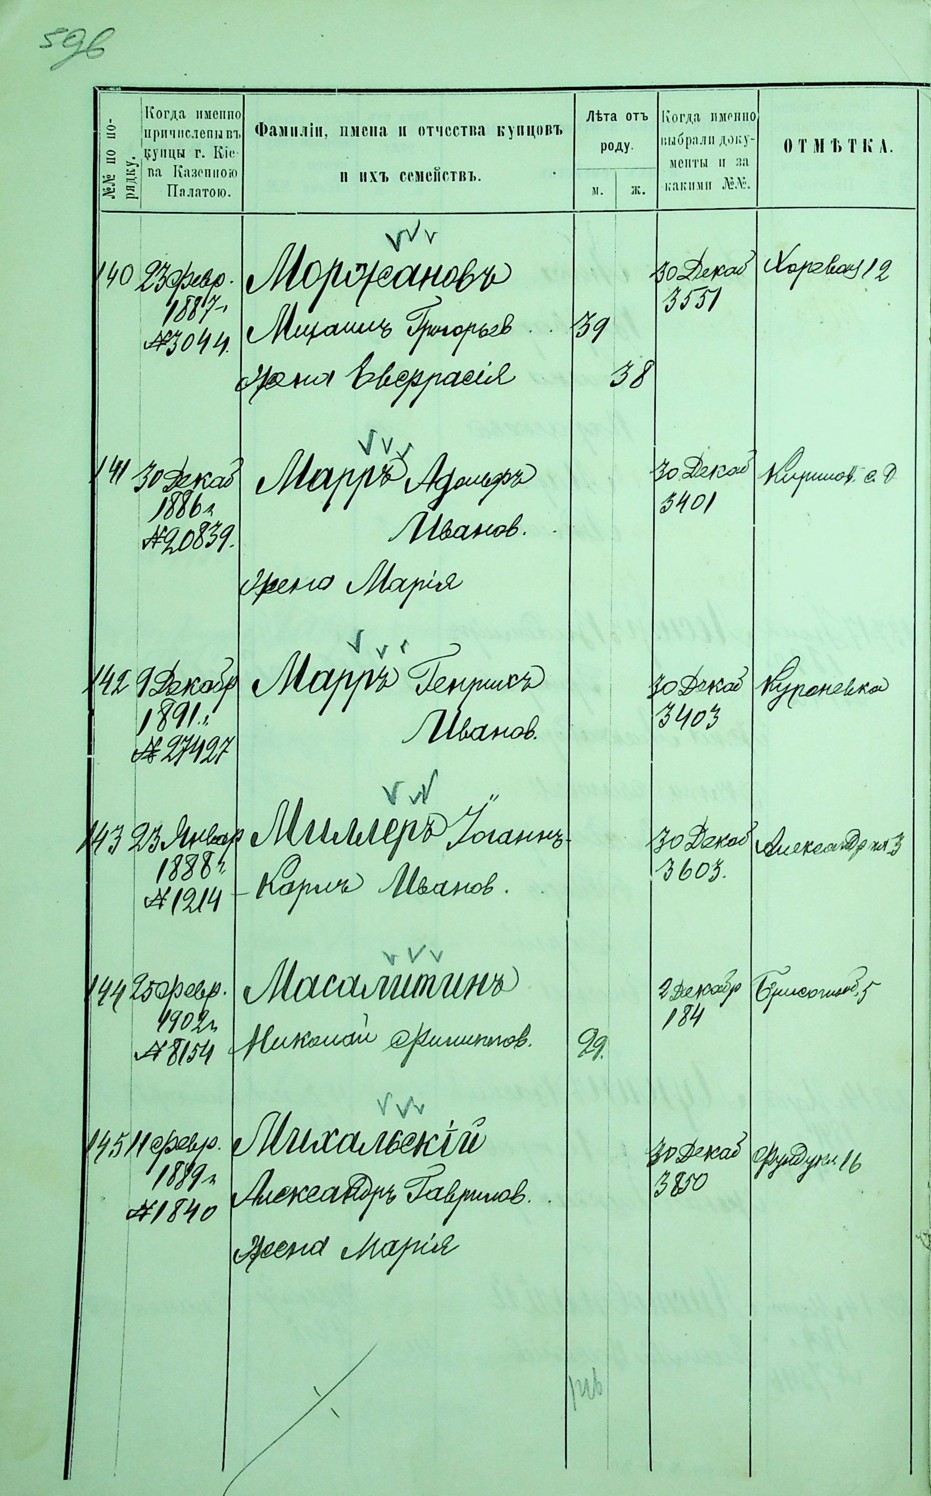 596
№№ по по-
рядку.
Когда именно
причислены въ
купцы г. Кіе-
ва Казенною
Палатою.
Фамиліи, имена и отчества купцовъ
и ихъ семействъ.
Лѣта отъ
роду.
м. ж.
Когда именно
выбрали доку-
менты и за
какими №№.
ОТМѢТКА.
140 23 февр. Моржановъ 30 Декаб
1887 г. 3551
№ 3044. Михаилъ Григорьев 39
Жена Евфрасія 38
141 30 Декаб Марръ Адольфъ 30 Декаб
1886 г. 3401
№ 20839. Иванов.
Жена Марія
142 9 Декабр Марръ Генрихъ 30 Декаб Куреневка
1891 г. 3403
№ 27427 Иванов.
143 23 Январ Миллеръ Іоганнъ- 30 Декаб Александр пл 3
1888 г. 3603.
№ 1214 Карлъ Иванов.
144 25 февр. Масалитинъ 2 Декабр 5
1902 г. 184
№ 8154 Николай Филиппов. 29.
145 11 февр. Михальскій 30 Декаб Фундукл 16
1889 г. 3850
№ 1840 Александръ Гаврилов.
Жена Марія